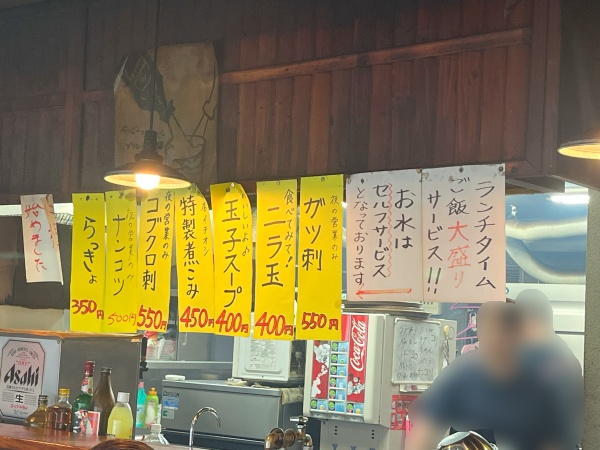 ランチタイム
ご飯大盛り
サービス!!
お水は
セルフサービス
となっております
夜の営業のみ
ガツ刺
550円
食べてみて!
ニラ玉
400円
おいしいよ♪
玉子スープ
400円
イチオシ
特製煮こみ
450円
夜の営業のみ
コブクロ刺
550円
夜の営業のみ
ナンコツ
500円
らっきょ
350円
始めました
Asahi
生
Coca-Cola